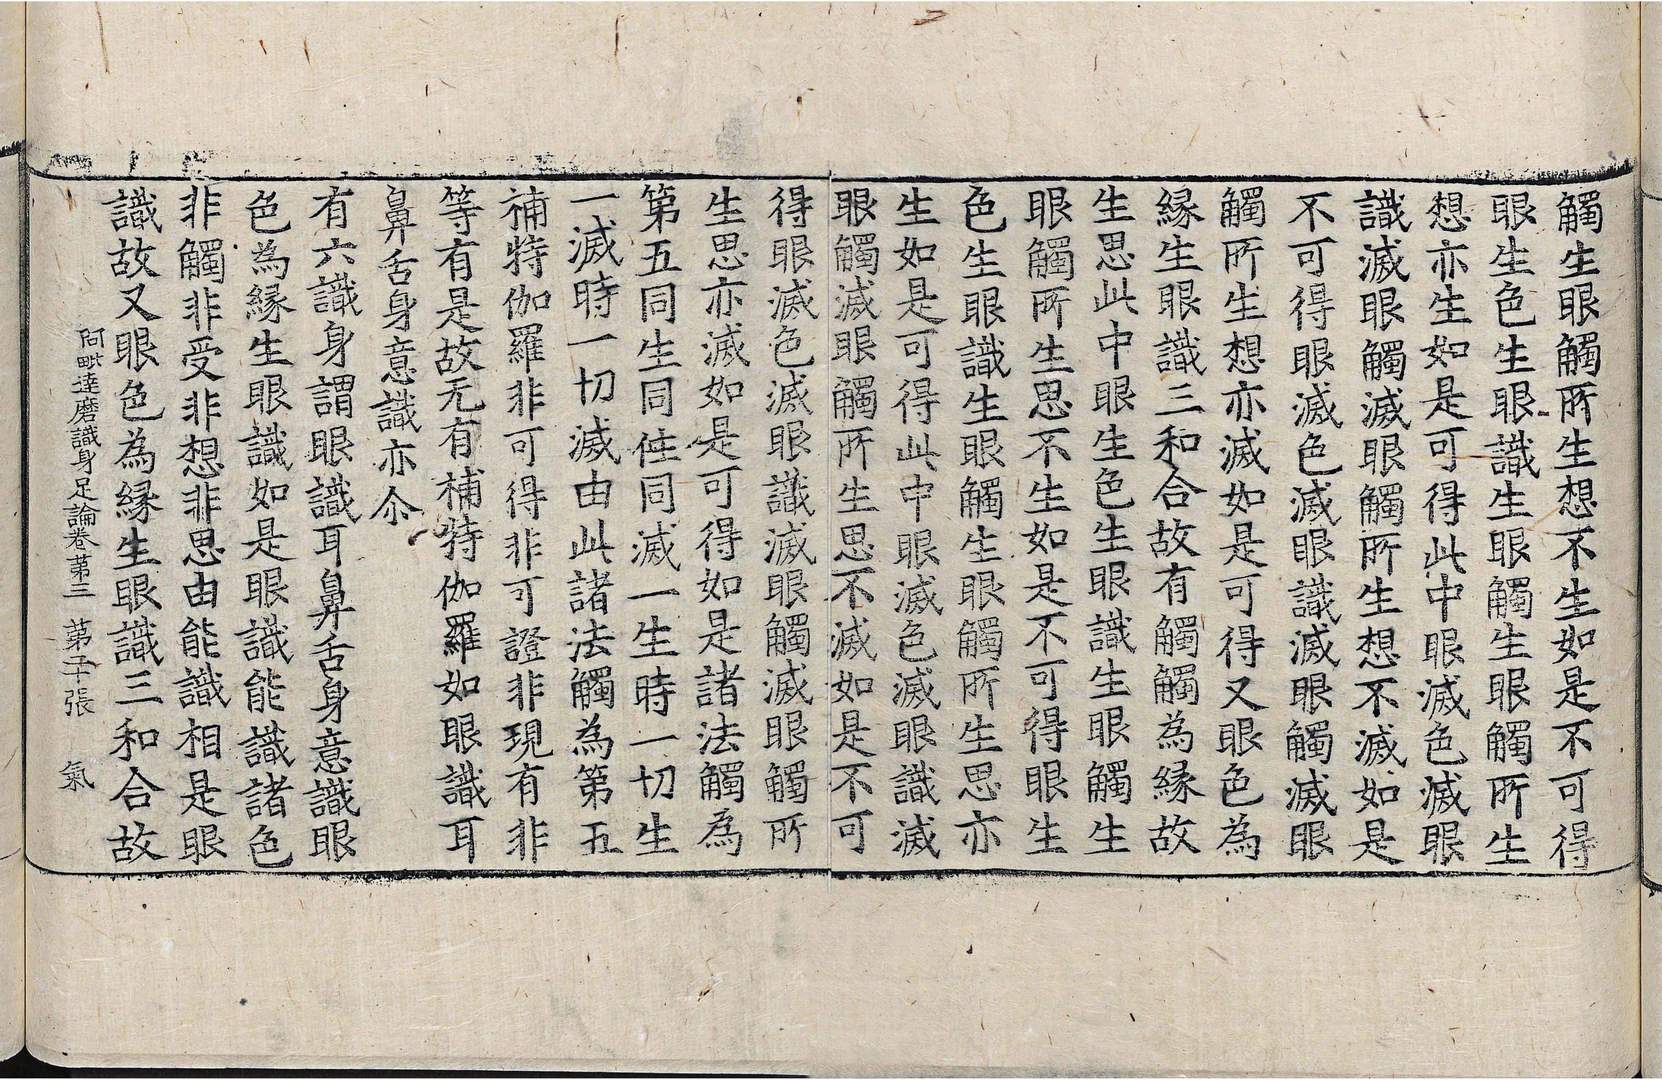 觸生眼觸所生想不生如是不可得
眼生色生眼識生眼觸生眼觸所生
想亦生如是可得此中眼滅色滅眼
識滅眼觸滅眼觸所生想不滅如是
不可得眼滅色滅眼識滅眼觸滅眼
觸所生想亦滅如是可得又眼色為
緣生眼識三和合故有觸觸為緣故
生思此中眼生色生眼識生眼觸生
眼觸所生思不生如是不可得眼生
色生眼識生眼觸生眼觸所生思亦
生如是可得此中眼滅色滅眼識滅
眼觸滅眼觸所生思不滅如是不可
得眼滅色滅眼識滅眼觸滅眼觸所
生思亦滅如是可得如是諸法觸為
第五同生同住同滅一生時一切生
一滅時一切滅由此諸法觸為第五
補特伽羅非可得非可證非現有非
等有是故无有補特伽羅如眼識耳
鼻舌身意識亦尒
有六識身謂眼識耳鼻舌身意識眼
色為緣生眼識如是眼識能識諸色
非觸非受非想非思由能識相是眼
識故又眼色為緣生眼識三和合故
阿毗達磨識身足論卷第三 第子張 氣